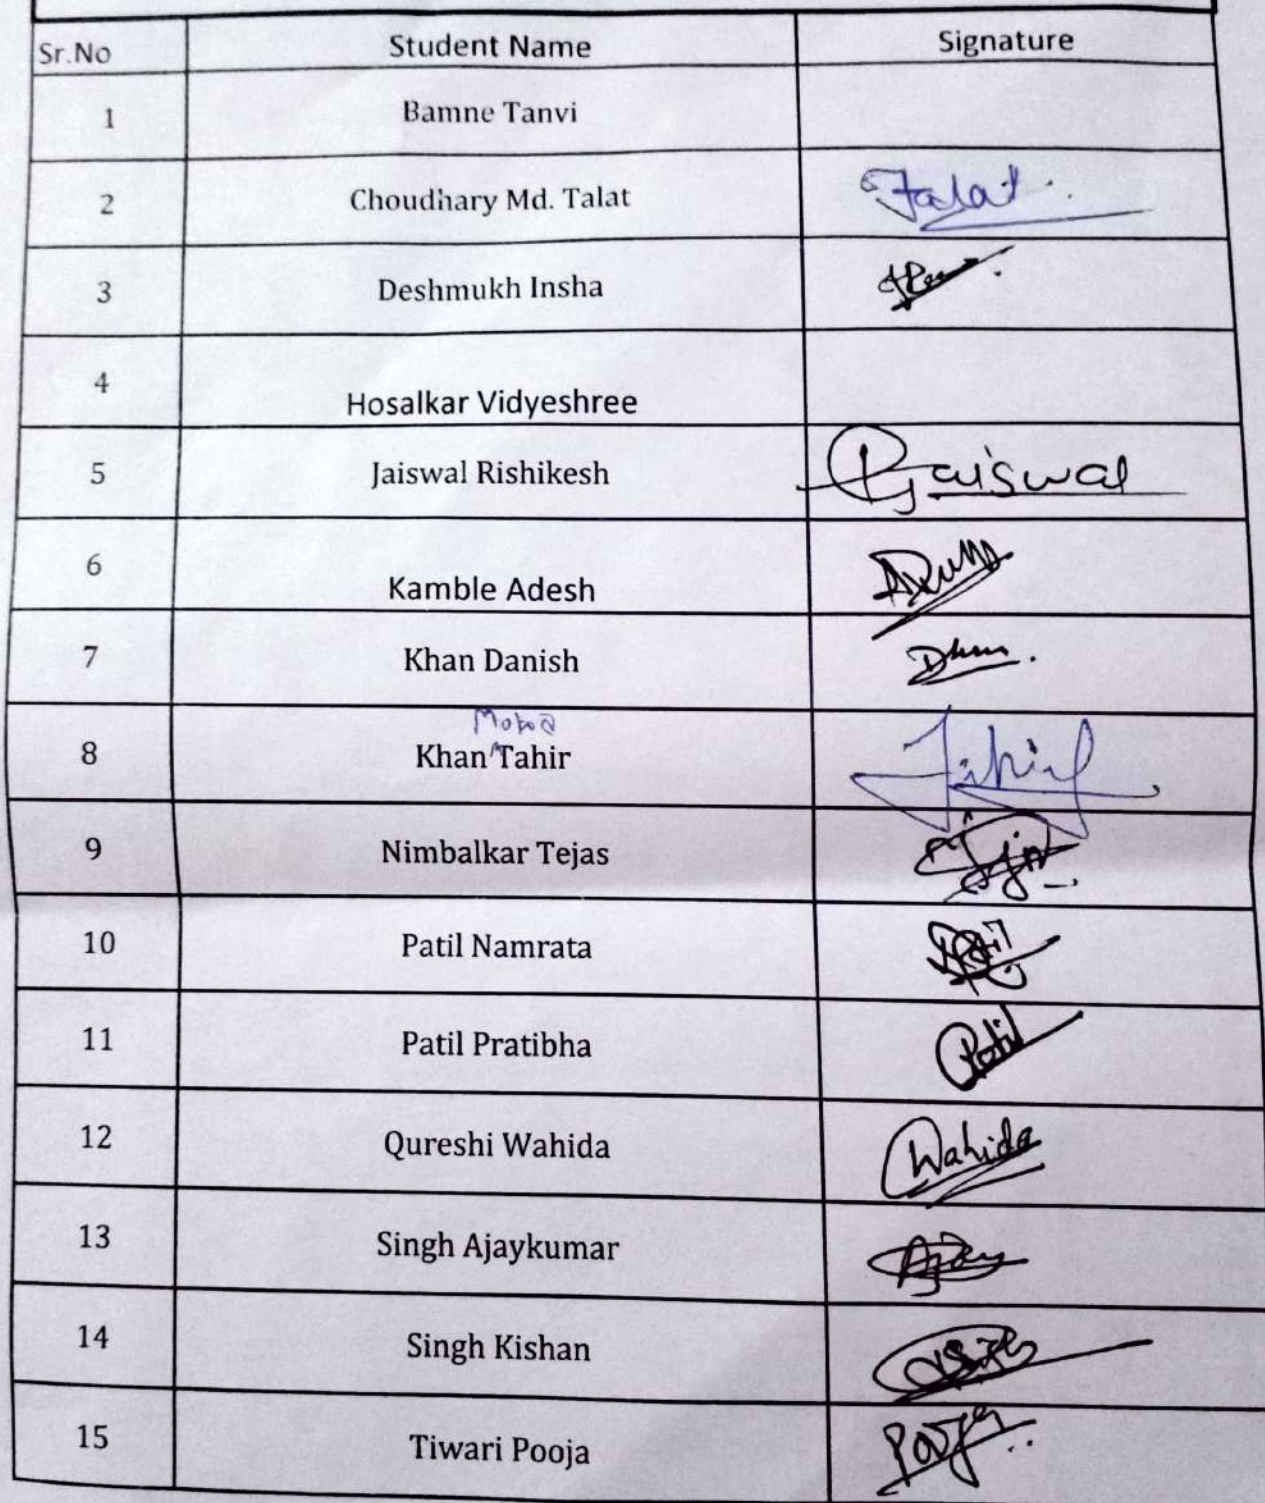 Sr.No Student Name Signature
1 Bamne Tanvi
2 Choudhary Md. Talat Talat
3 Deshmukh Insha
4 Hosalkar Vidyeshree
5 Jaiswal Rishikesh RJaiswal
6 Kamble Adesh
7 Khan Danish
Mohd
8 Khan Tahir Tahir
9 Nimbalkar Tejas
10 Patil Namrata
11 Patil Pratibha Patil
12 Qureshi Wahida Wahida
13 Singh Ajaykumar Ajay
14 Singh Kishan
15 Tiwari Pooja Pooja